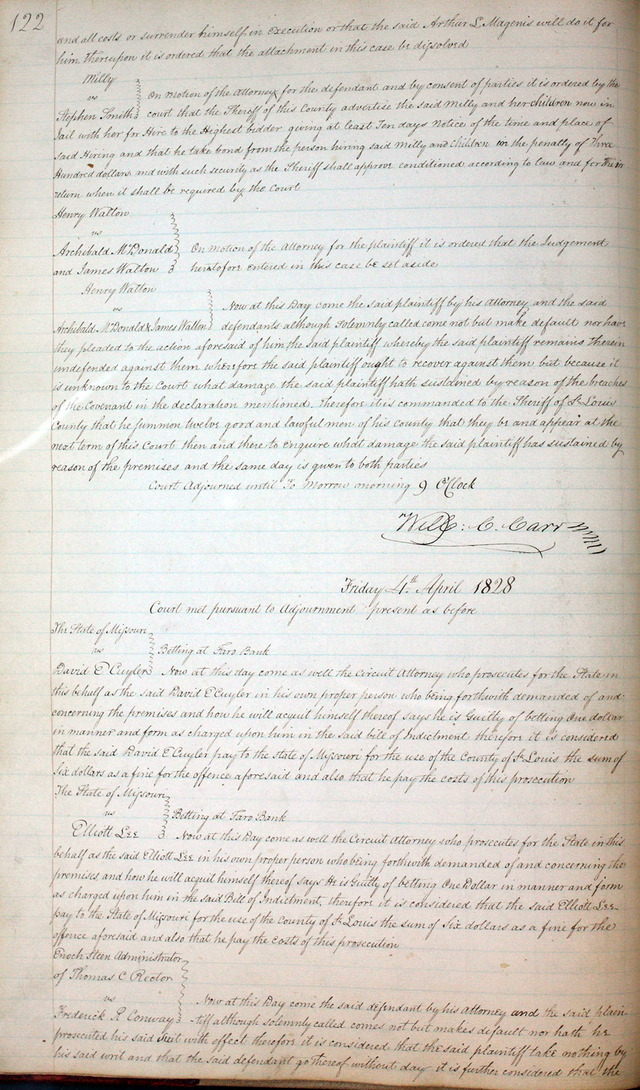 122
and all costs or surrender himself in execution or that the said Arthur L. Magenis will do it for
him thereupon it is ordered that the attachment in this case be dissolved
Milly
vs
On motion of the Attorney for the defendant and by consent of parties it is ordered by the
Stephen Smith court that the Sheriff of this County advertise the said Milly and her children now in
Jail with her for Hire to the Highest bidder giving at least Ten days Notice of the time and place of
said Hiring and that he take bond from the person hiring said Milly and Children in the penalty of Three
Hundred dollars and with such security as the Sheriff shall approve conditioned according to law and for their
return when it shall be required by the Court
Henry Walton
vs
Archibald McDonald On motion of the Attorney for the plaintiff it is ordered that the Judgement
and James Walton heretofore entered in this case be set aside
Henry Walton
vs
Now at this Day come the said plaintiff by his Attorney and the said
Archibald McDonald & James Walton defendants although solemnly called come not but make default nor have
they pleaded to the action aforesaid of him the said plaintiff whereby the said plaintiff remains therein
undefended against them wherefore the said plaintiff ought to recover against them but because it
is unknown to the Court what damage the said plaintiff hath sustained by reason of the breaches
of the Covenant in the declaration mentioned, therefore it is commanded to the Sheriff of St Louis
County that he summon twelve good and lawful men of his county that they be and appear at the
next term of this Court then and there to enquire what damage the said plaintiff has sustained by
reason of the premises and the same day is given to both parties
Court Adjourned until To Morrow morning 9 O'Clock
Will: C. Carr
Friday 4th April 1828
Court met pursuant to Adjournment present as before
The State of Missouri
vs Betting at Faro Bank
David E Cuyler Now at this day come as well the Circuit Attorney who prosecutes for the State in
this behalf as the said David E Cuyler in his own proper person who being forthwith demanded of and
concerning the premises and how he will acquit himself thereof says he is Guilty of betting One dollar
in manner and form as charged upon him in the said bill of Indictment therefore it is considered
that the said David E Cuyler pay to the State of Missouri for the use of the County of St Louis the sum of
Six dollars as a fine for the offence aforesaid and also that he pay the costs of this prosecution
The State of Missouri
vs Betting at Faro Bank
Elliott Lee Now at this Day come as well the Circuit Attorney who prosecutes for the State in this
behalf as the said Elliott Lee in his own proper person who being forthwith demanded of and concerning the
premises and how he will acquit himself thereof says He is Guilty of betting One Dollar in manner and form
as charged upon him in the said Bill of Indictment, therefore it is considered that the said Elliott Lee
pay to the State of Missouri for the use of the County of St Louis the sum of Six dollars as a fine for the
offence aforesaid and also that he pay the costs of this prosecution
Enoch Steen Administrator
of Thomas C Rector
vs Now at this Day come the said defendant by his Attorney and the said plain
Frederick R Conway tiff although solemnly called comes not but makes default nor hath he
prosecuted his said Suit with effect therefore it is considered that the said plaintiff take nothing by
his said writ and that the said defendant go thereof without day it is further considered that the